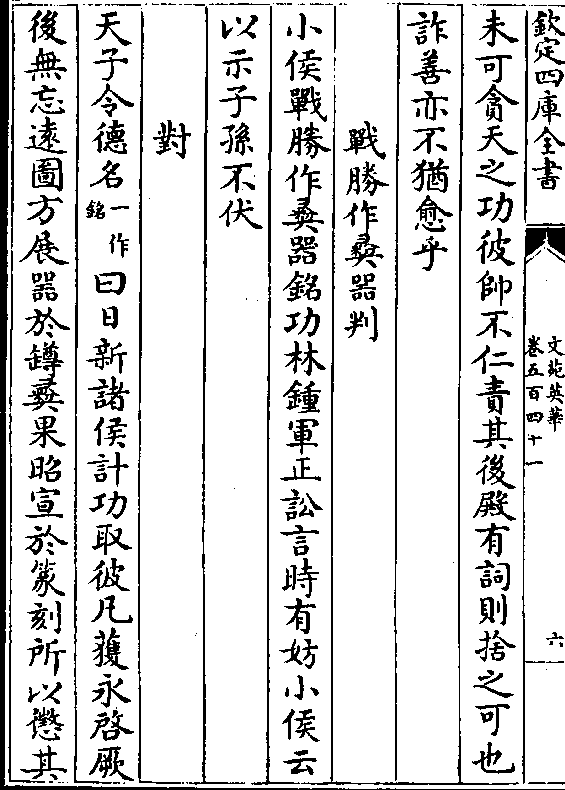 欽定四庫全書
文苑英華
卷五百四十一
六
未可貪天之功彼帥不仁責其後殿有詞則捨之可也
詐善亦不猶愈乎
戰勝作彞器判
小侯戰勝作彞器銘功林鍾軍正訟言時有妨小侯云
以示子孫不伏
對
天子令德名一作銘曰日新諸侯計功取彼凡蒦永啓厥
後無忘遠圖方展器於鐏彞果昭宣於篆刻所以懲其